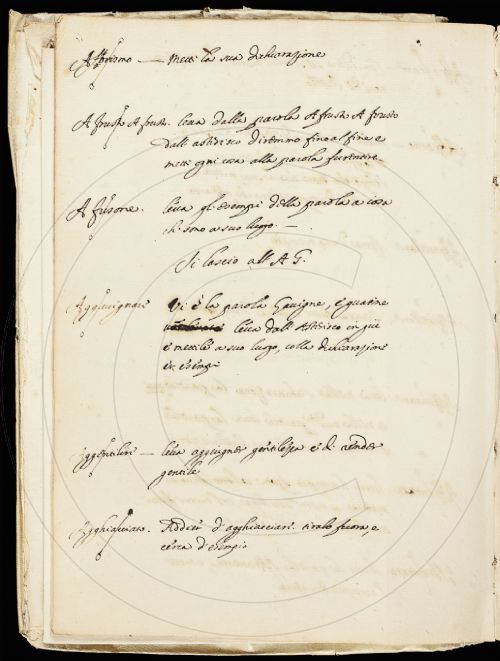 Aforismo — metti la sua dichiarazione
A frusto A frusto. leva dalla parola A frusto A frusto
dall'asterisco diremmo fino al fine e
metti ogni cosa alla parola
A fusone. leva gl'esempi della parola a cosa
ch. sono a suo luogo. —
Si lascio all'AG.
Aggavignare vi è la parola Gavigne, e
leva dall'Asterisco in giù
e mettile a suo luogo, colla dichiarazione
et esempi
Aggentilire — leva aggiugner gentilezza e di render
gentile
Agghiacciato. Addiet. d'agghiacciare. tiralo fuora, e
cerca d'esempio